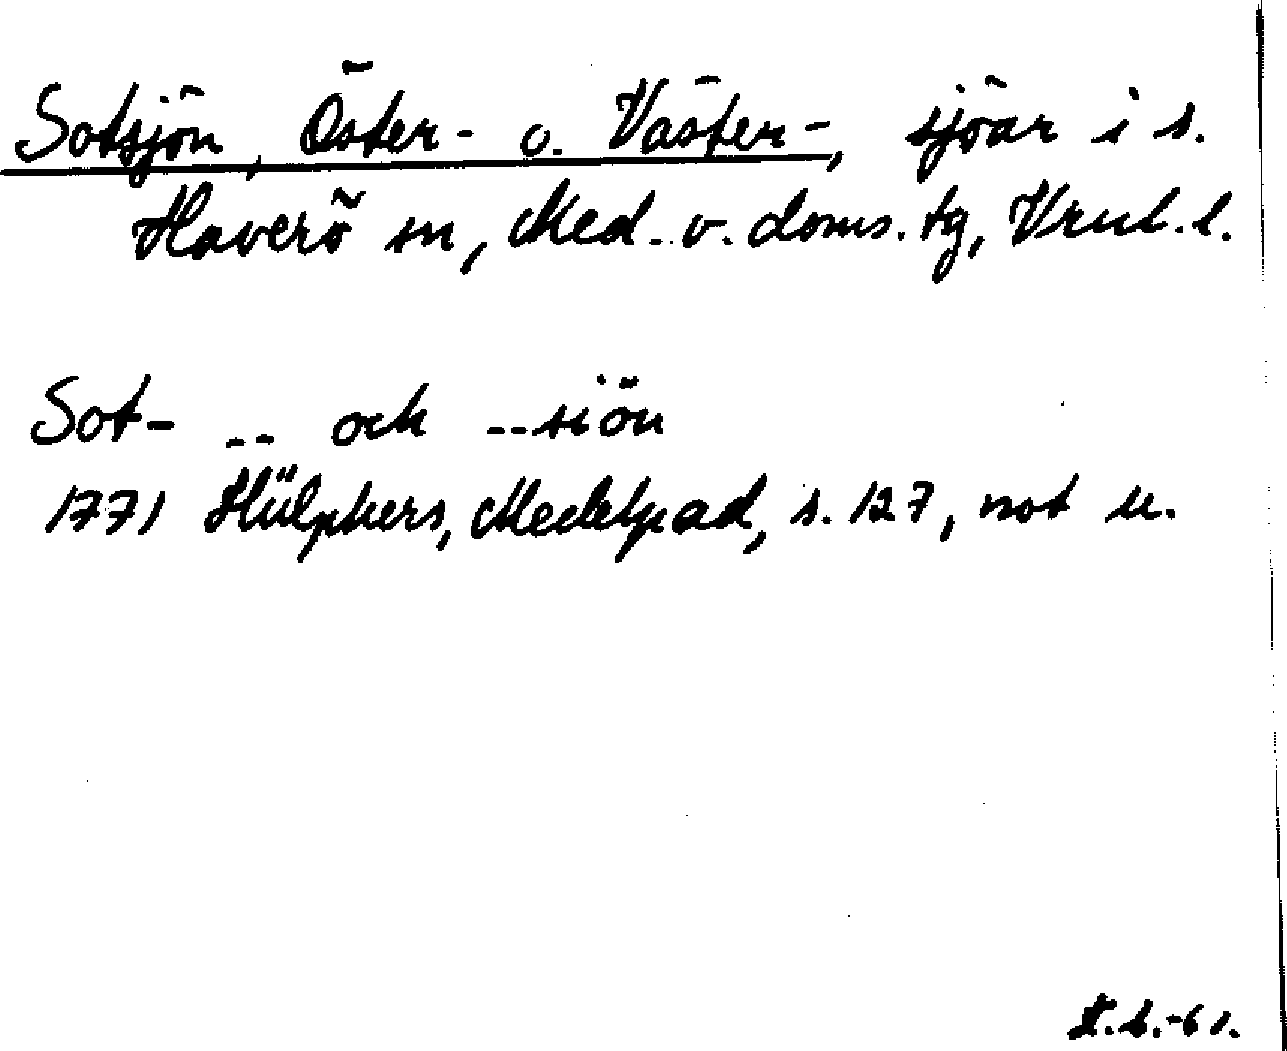 Sotsjön, Öster- o. Väster-, sjöar i s.
Haverö sn, Med. v. doms. tg, Vrnl. l.
Sot- -- och --siön
1771 Hülphers, Medelpad, s. 127, not u.